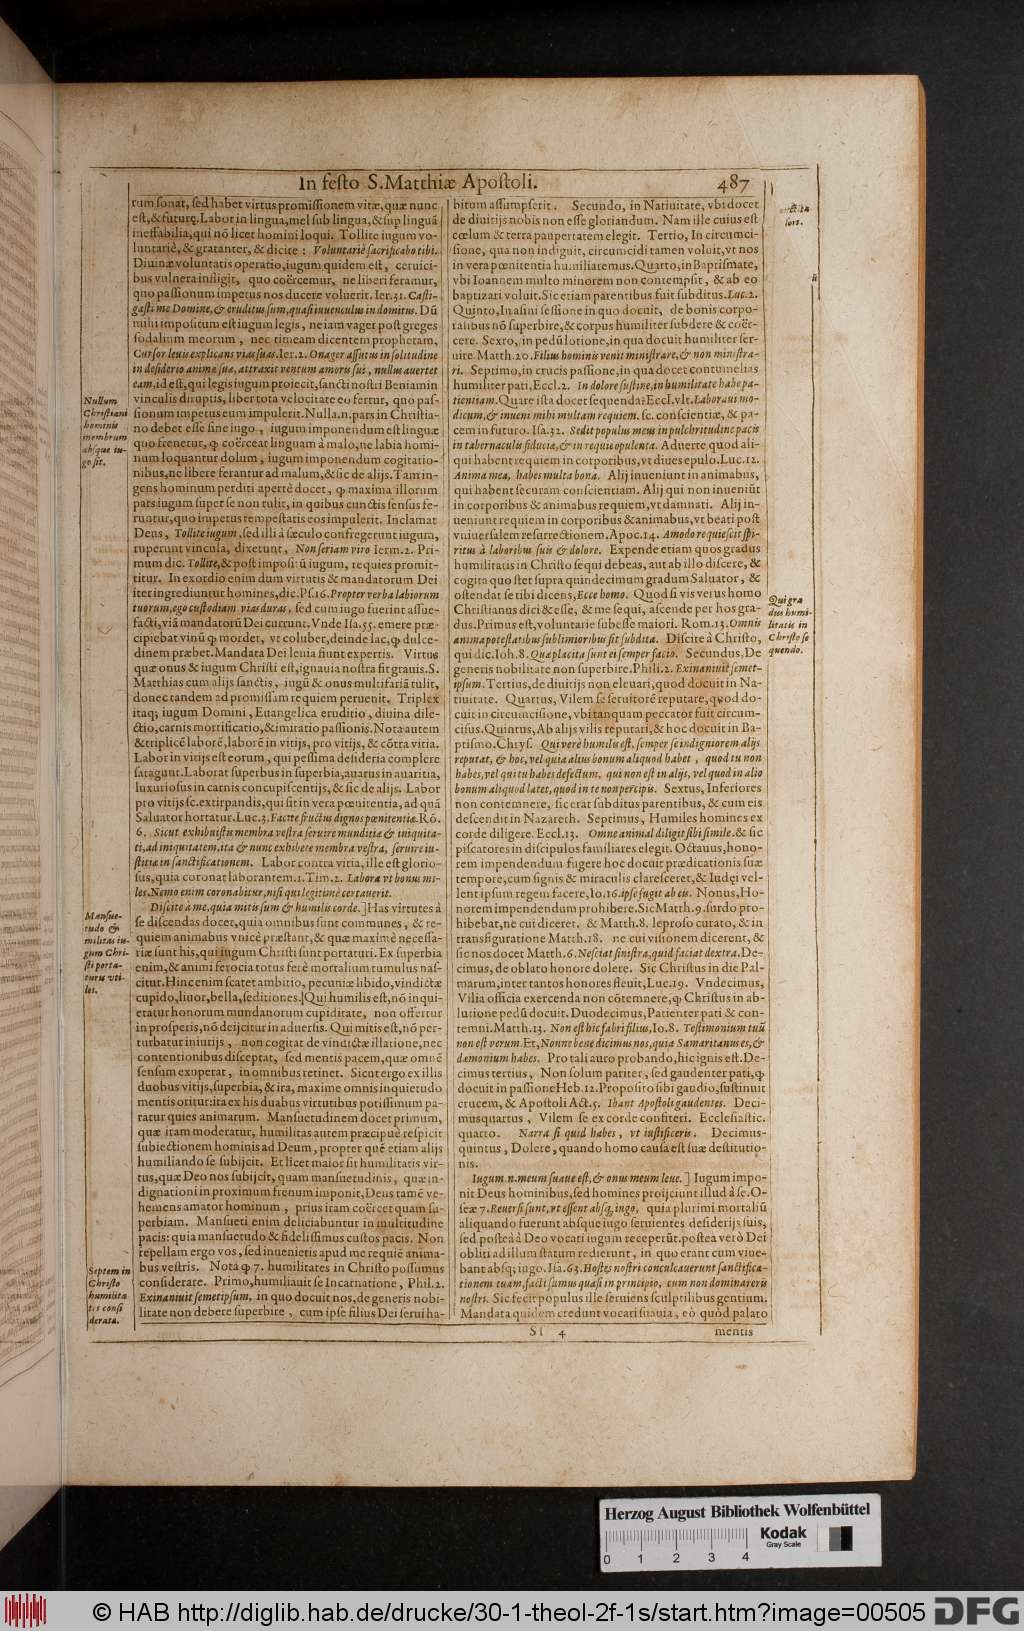 In festo S. Matthiæ Apostoli. 487
tum sonat, sed habet virtus promissionem vitæ, quæ nunc
est, & futurę. Labor in lingua, mel sub lingua, & sup linguā
ineffabilia, qui nō licet homini loqui. Tollite iugum vo-
luntariè, & gratanter, & dicite: Voluntariè sacrificabo tibi.
Diuinæ voluntatis operatio, iugum quidem est, ceruici-
bus vulnera infligit, quo coërcemur, ne liberi feramur,
quo passionum impetus nos ducere voluerit. Ier. 31. Casti-
gasti me Domine, & eruditus sum, quasi iuuenculus indomitus. Dū
mihi impositum est iugum legis, ne iam vager post greges
sodalium meorum, nec timeam dicentem prophetam,
Cursor leuis explicans vias suas. Ier. 2. Onager assutus in solitudine
in desiderio animæ suæ, attraxit ventum amoris sui, nullus auertet
eam, id est, qui legis iugum proiecit, sancti nostri Beniamin
vinculis diruptis, liber tota velocitate eo fertur, quo pas-
sionum impetus eum impulerit. Nulla. n. pars in Christia-
no debet esse sine iugo, iugum imponendum est linguæ
quo frenetur, ꝙ coërceat linguam à malo, ne labia homi-
num loquantur dolum, iugum imponendum cogitatio-
nibus, ne libere ferantur ad malum, & sic de alijs. Tam in-
gens hominum perditi apertè docet, ꝙ maxima illorum
pars iugum super se non tulit, in quibus cunctis sensus fe-
runtur, quo impetus tempestatis eos impulerit. Inclamat
Deus, Tollite iugum, sed illi à sęculo confregerunt iugum,
ruperunt vincula, dixerunt, Non seriam viro Ierm. 2. Pri-
mum dic. Tollite, & post impositū iugum, requies promit-
titur. In exordio enim dum virtutis & mandatorum Dei
iter ingrediuntur homines, dic. Ps. 16. Propter verba labiorum
tuorum, ego custodiam vias duras, sed cum iugo fuerint assue-
facti, viā mandatorū Dei currunt. Vnde Isa. 55. emere præ-
cipiebat vinū ꝙ mordet, vt coluber, deinde lac, ꝙ dulce-
dinem præbet. Mandata Dei leuia fiunt expertis. Virtus
quæ onus & iugum Christi est, ignauia nostra fit grauis. S.
Matthias cum alijs sanctis, iugū & onus multifariā tulit,
donec tandem ad promissam requiem peruenit. Triplex
itaq; iugum Domini, Euangelica eruditio, diuina dile-
ctio, carnis mortificatio, & imitatio passionis. Nota autem
& triplicē laborē, laborē in vitijs, pro vitijs, & cōtra vitia.
Labor in vitijs est eorum, qui pessima desideria complere
satagunt. Laborat superbus in superbia, auarus in auaritia,
luxuriosus in carnis concupiscentijs, & sic de alijs. Labor
pro vitijs sc. extirpandis, qui fit in vera pœnitentia, ad quā
Saluator hortatur. Luc. 3. Facite fructus dignos pœnitentiæ. Rō.
6. Sicut exhibuistis membra vestra seruire munditiæ & iniquita-
ti, ad iniquitatem, ita & nunc exhibete membra vestra, seruire iu-
stitiæ in sanctificationem. Labor contra vitia, ille est glorio-
sus, quia coronat laborantem. 1. Tim. 2. Labora vt bonus mi-
les. Nemo enim coronabitur, nisi qui legitimè certauerit.
Discite à me, quia mitis sum & humilis corde.] Has virtutes à
se discendas docet, quia omnibus sunt communes, & re-
quiem animabus vnicè præstant, & quæ maximè necessa-
riæ sunt his, qui iugum Christi sunt portaturi. Ex superbia
enim, & animi ferocia totus ferè mortalium tumulus nas-
citur. Hinc enim scatet ambitio, pecuniæ libido, vindictæ
cupido, liuor, bella, seditiones.] Qui humilis est, nō inqui-
etatur honorum mundanorum cupiditate, non offertur
in prosperis, nō deijcitur in aduersis. Qui mitis est, nō per-
turbatur iniurijs, non cogitat de vindictæ illatione, nec
contentionibus disceptat, sed mentis pacem, quæ omnē
sensum exuperat, in omnibus retinet. Sicut ergo ex illis
duobus vitijs, superbia, & ira, maxime omnis inquietudo
mentis oritur: ita ex his duabus virtutibus potissimum pa-
ratur quies animarum. Mansuetudinem docet primum,
quæ iram moderatur, humilitas autem præcipuè respicit
subiectionem hominis ad Deum, propter quē etiam alijs
humiliando se subijcit. Et licet maior sit humilitatis vir-
tus, quæ Deo nos subijcit, quam mansuetudinis, quæ in-
dignationi in proximum frenum imponit, Deus tamē ve-
hemens amator hominum, prius iram coërcet quam su-
perbiam. Mansueti enim deliciabuntur in multitudine
pacis: quia mansuetudo & fidelissimus custos pacis. Non
repellam ergo vos, sed inuenietis apud me requiē anima-
bus vestris. Nota ꝙ 7. humilitates in Christo possumus
considerate. Primo, humiliauit se Incarnatione, Phil. 2.
Exinaniuit semetipsum, in quo docuit nos, de generis nobi-
litate non debere superbire, cum ipse filius Dei serui ha-
Nullum
Christiani
hominis
membrum
absque iu-
go sit.
Mansue-
tudo &
militas iu-
gum Chri-
sti porta-
turis vti-
les.
Septem in
Christo
humilita
tes consi
derata.
bitum assumpserit. Secundo, in Natiuitate, vbi docet
de diuitijs nobis non esse gloriandum. Nam ille cuius est
cœlum & terra paupertatem elegit. Tertio, In circumci-
sione, qua non indiguit, circumcidi tamen voluit, vt nos
in vera pœnitentia humiliaremus. Quarto, in Baptismate,
vbi Ioannem multo minorem non contempsit, & ab eo
baptizari voluit. Sic etiam parentibus fuit subditus. Luc. 2.
Quinto, In asini sessione in quo docuit, de bonis corpo-
ralibus nō superbire, & corpus humiliter subdere & coër-
cere. Sexto, in pedū lotione, in qua docuit humiliter ser-
uire. Matth. 20. Filius hominis venit ministrare, & non ministra-
ri. Septimo, in crucis passione, in qua docet contumelias
humiliter pati, Eccl. 2. In dolore sustine, in humilitate habe pa-
tientiam. Quare ista docet sequenda: Eccl. vlt. Laboraui mo-
dicum, & inueni mihi multam requiem, sc. conscientiæ, & pa-
cem in futuro. Isa. 32. Sedit populus meus in pulchritudine pacis
in tabernaculis fiduciæ, & in requie opulenta. Aduerte quod ali-
qui habent requiem in corporibus, vt diues epulo. Luc. 12.
Anima mea, habes multa bona. Alij inueniunt in animabus,
qui habent securam conscientiam. Alij qui non inueniūt
in corporibus & animabus requiem, vt damnati. Alij in-
ueniunt requiem in corporibus & animabus, vt beati post
vniuersalem resurrectionem. Apoc. 14. Amodo requiescit spi-
ritus à laboribus suis & dolore. Expende etiam quos gradus
humilitatis in Christo sequi debeas, aut ab illo discere, &
cogita quo stet supra quindecimum gradum Saluator, &
ostendat se tibi dicens, Ecce homo. Quod si vis verus homo
Christianus dici & esse, & me sequi, ascende per hos gra-
dus. Primus est, voluntarie subesse maiori. Rom. 13. Omnis
anima potestatibus sublimioribus sit subdita. Discite à Christo,
qui dic. Ioh. 8. Quæ placita sunt ei semper facio. Secundus, De
generis nobilitate non superbire. Phili. 2. Exinaniuit semet-
ipsum. Tertius, de diuitijs non eleuari, quod docuit in Na-
tiuitate. Quartus, Vilem se seruitorē reputare, quod do-
cuit in circumcisione, vbi tanquam peccator fuit circum-
cisus. Quintus, Ab alijs vilis reputari, & hoc docuit in Ba-
ptismo. Chrys. Qui verè humilis est, semper se indigniorem alijs
reputat, & hoc, vel quia alius bonum aliquod habet, quod tu non
habes, vel qui tu habes defectum, qui non est in alijs, vel quod in alio
bonum aliquod latet, quod in te non percipis. Sextus, Inferiores
non contemnere, sic erat subditus parentibus, & cum eis
descendit in Nazareth. Septimus, Humiles homines ex
corde diligere. Eccl. 13. Omne animal diligit sibi simile. & sic
piscatores in discipulos familiares elegit. Octauus, hono-
rem impendendum fugere hoc docuit prædicationis suæ
tempore, cum signis & miraculis claresceret, & Iudęi vel-
lent ipsum regem facere, Io. 16. ipse fugit ab eis. Nonus, Ho-
norem impendendum prohibere. Sic Matth. 9. surdo pro-
hibebat, ne cui diceret. & Matth. 8. leproso curato, & in
transfiguratione Matth. 18. ne cui visionem dicerent, &
sic nos docet Matth. 6. Nesciat sinistra, quid faciat dextra. De-
cimus, de oblato honore dolere. Sic Christus in die Pal-
marum, inter tantos honores fleuit, Luc. 19. Vndecimus,
Vilia officia exercenda non cōtemnere, ꝙ Christus in ab-
lutione pedū docuit. Duodecimus, Patienter pati & con-
temni. Matth. 13. Non est hic fabri filius, Io. 8. Testimonium tuū
non est verum. Et, Nonne bene dicimus nos, quia Samaritanus es, &
dæmonium habes. Pro tali auro probando, hic ignis est. De-
cimus tertius, Non solum pariter, sed gaudenter pati, ꝙ
docuit in passione Heb. 12. Proposito sibi gaudio, sustinuit
crucem, & Apostoli Act. 5. Ibant Apostoli gaudentes. Deci-
musquartus, Vilem se ex corde confiteri. Ecclesiastic.
quarto. Narra si quid habes, vt iustificeris. Decimus-
quintus, Dolere, quando homo causa est suæ destitutio-
nis.
Iugum. n. meum suaue est, & onus meum leue.] Iugum impo-
nit Deus hominibus, sed homines proijciunt illud à se. O-
seæ 7. Reuersi sunt, vt essent absq, iugo, quia plurimi mortaliū
aliquando fuerunt absque iugo seruientes desiderijs suis,
sed posteà à Deo vocati iugum receperūt. postea verò Dei
obliti ad illum statum redierunt, in quo erant cum viue-
bant absq; iugo. Isa. 63. Hostes nostri conculcauerunt sanctifica-
tionem tuam, facti sumus quasi in principio, cum non dominareris
nostri. Sic fecit populus ille seruiens sculptilibus gentium.
Mandata quidem credunt vocari suauia, eò quòd palato
Qui gra
dus humi-
litatis in
Christo se
quendo.
Sſ 4 mentis
Herzog August Bibliothek Wolfenbüttel
Kodak
Gray Scale
0 1 2 3 4
© HAB http://diglib.hab.de/drucke/30-1-theol-2f-1s/start.htm?image=00505 DFG